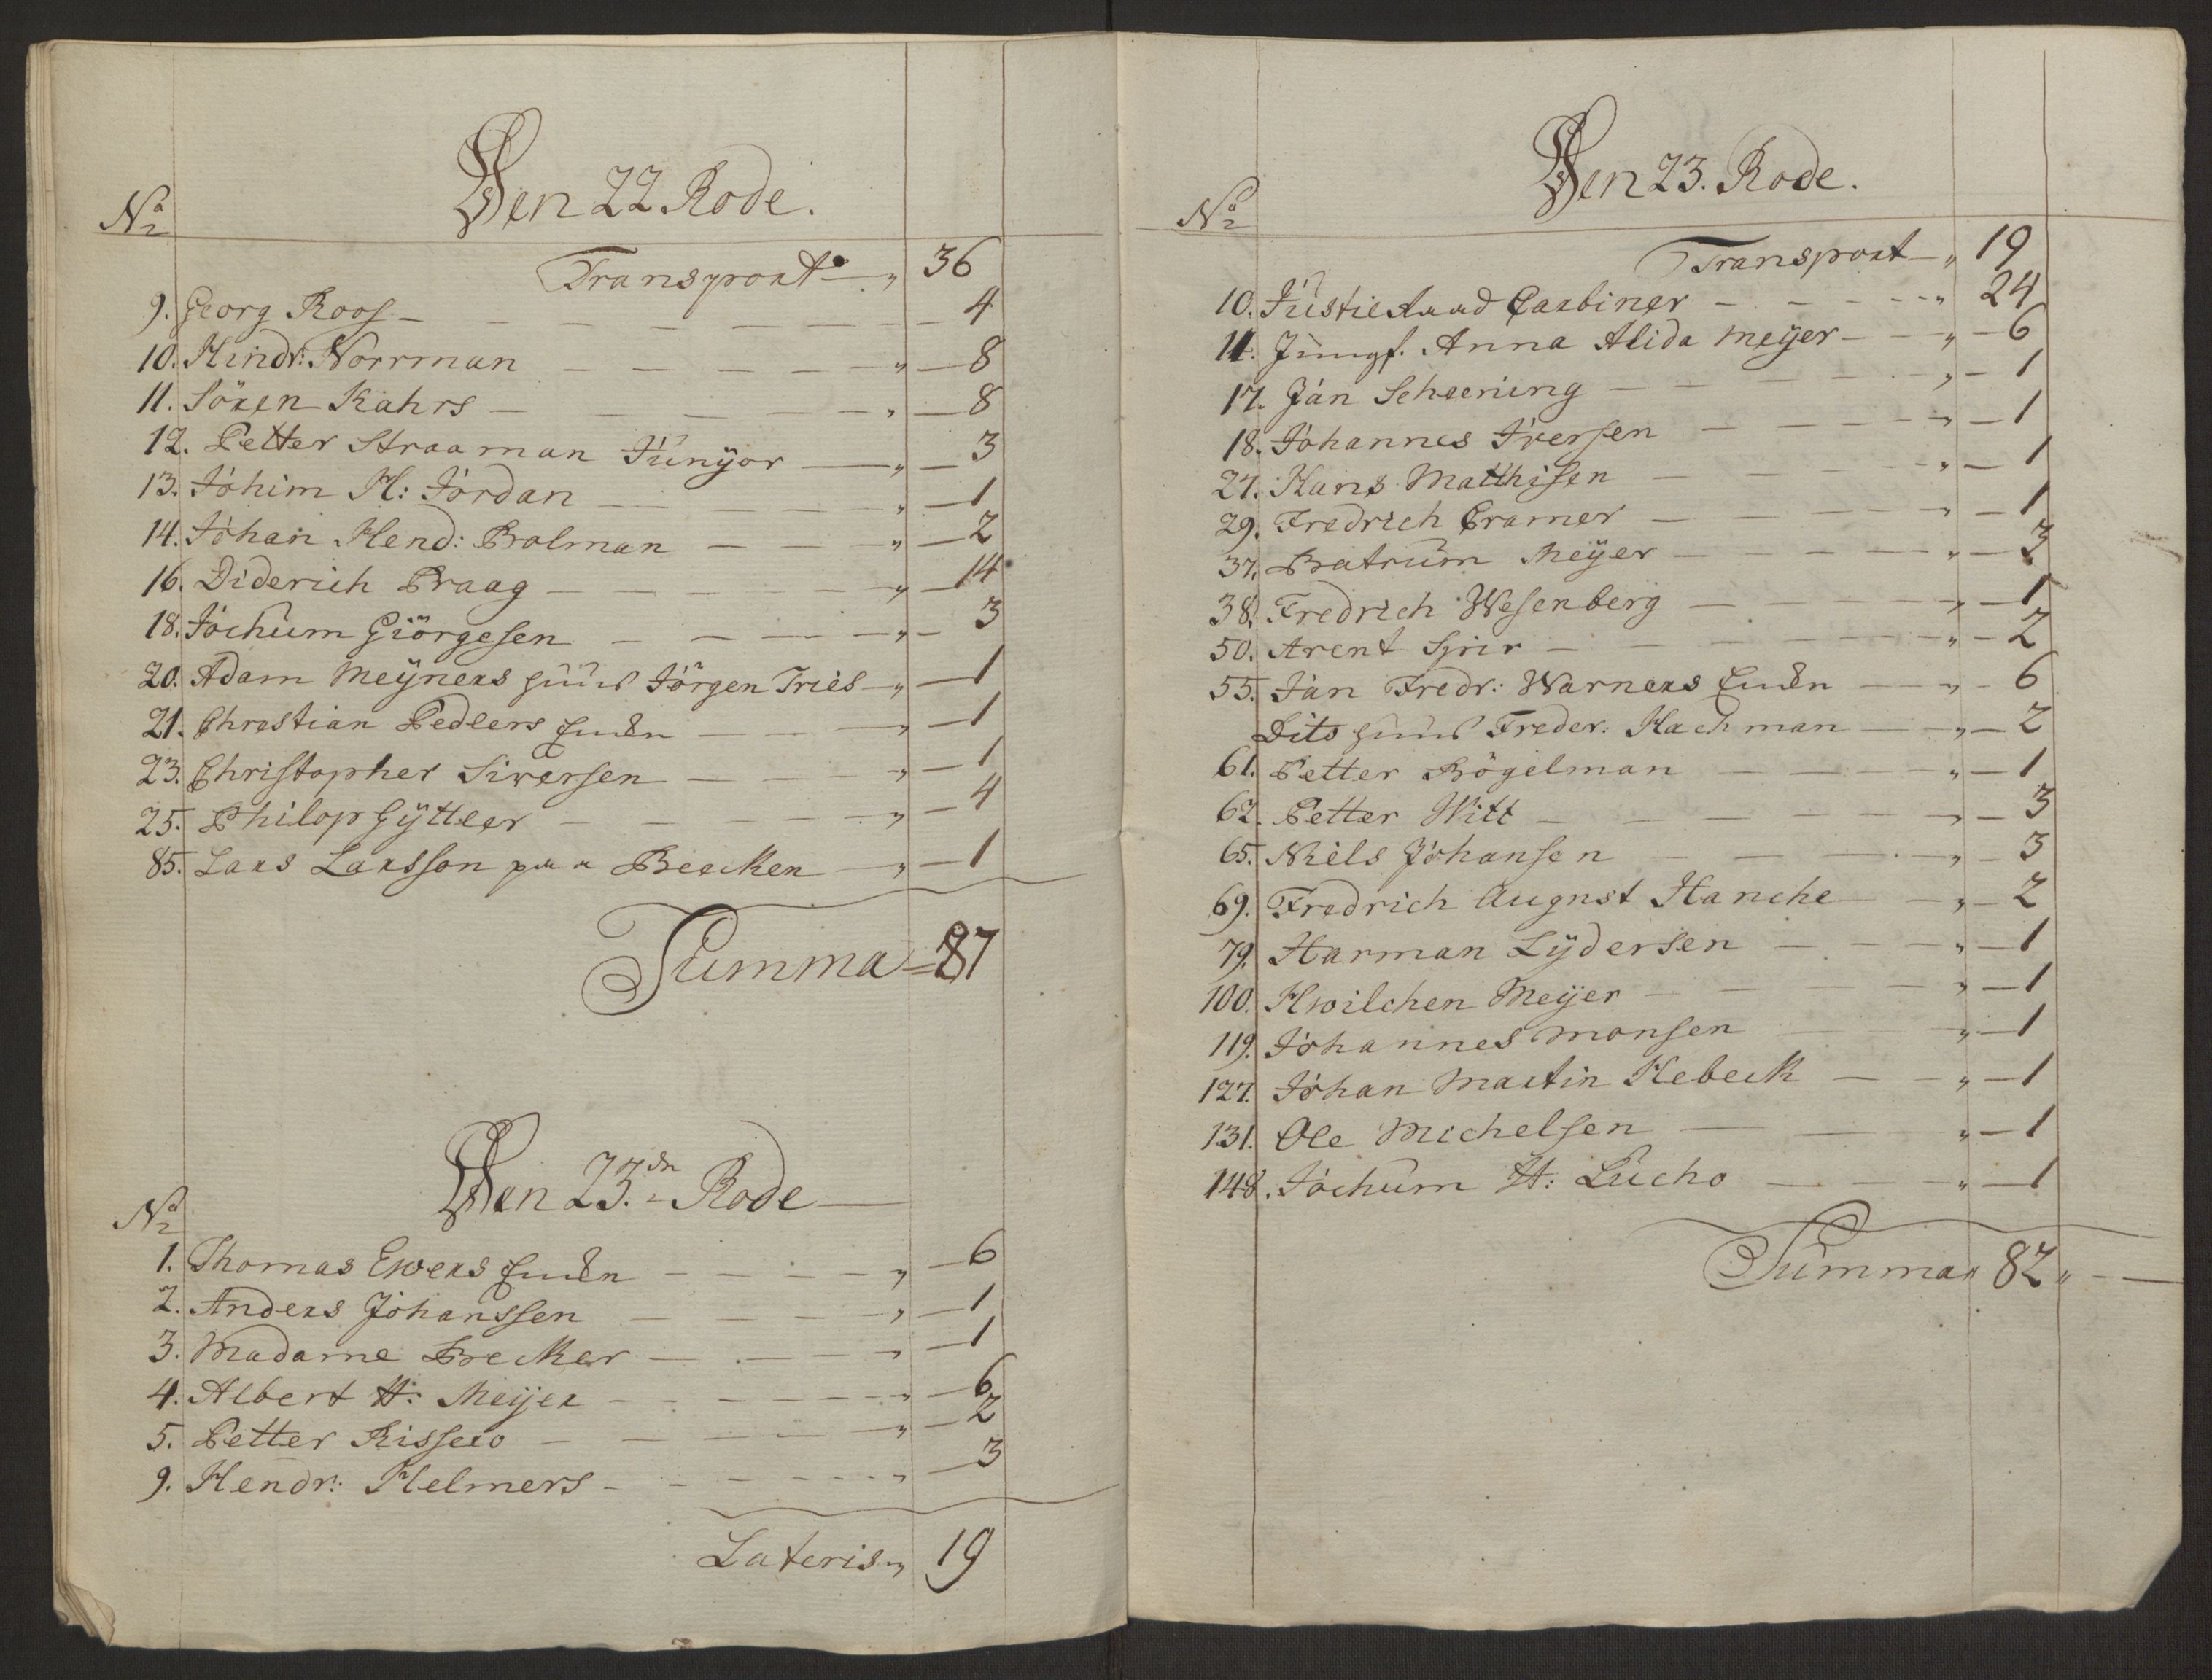 Den 22 Rode.
No
Transport " 36
9. Georg Roos 4
10. Hindr: Norrman " 8
11. Sören Kahrs " 8
12. Petter Straaman Junÿor " 3
13. Johim H: Jordan " 1
14. Johan Hend: Bolman " 2
16. Diderich Praag " 14
18. Jochum Giörgesen " 3
20. Adam Meÿners huus Jörgen Tries " 1
21. Chrestian Pedlers Encken " 1
23. Christopher Siversen " 1
25. Philop Gÿtler " 4
85. Lars Larsson paa Becken " 1
Summa = 87
Den 23.dn Rode
No
1. Thomas Ewers Encken " 6
2. Anders Johanssen " 1
3. Madame Becker " 1
4. Albert H: Meÿer " 6
5. Petter Rissero " 2
9. Hendr: Helmers " 3
Lateris " 19
Den 23. Rode.
No
Transport " 19
10. Justie Raad Carbiner " 24
11. Jungf. Anna Alida Meÿer " 6
17. Jan Scheering " 1
18. Johannes Iversen " 1
27. Hans Matthisen " 1
29. Fredrich Cramer " 1
37. Batrum Meÿer " 3
38. Fredrich Wesenberg " 1
50. Arent Spir " 2
55. Jan Fredr: Warners Encken " 6
Dito huus Freder: Hachman " 2
61. Petter Bögelman " 1
62. Petter Witt " 3
65. Niels Johansen " 3
69. Fredrich August Hanche " 2
79. Harman Lÿdersen " 1
100. Hwilchen Meÿer " 1
119. Johannes Monsen " 1
127. Johan Martin Hebeck " 1
131. Ole Michelsen " 1
148. Jochum H: Lucho " 1
Summa " 82 "